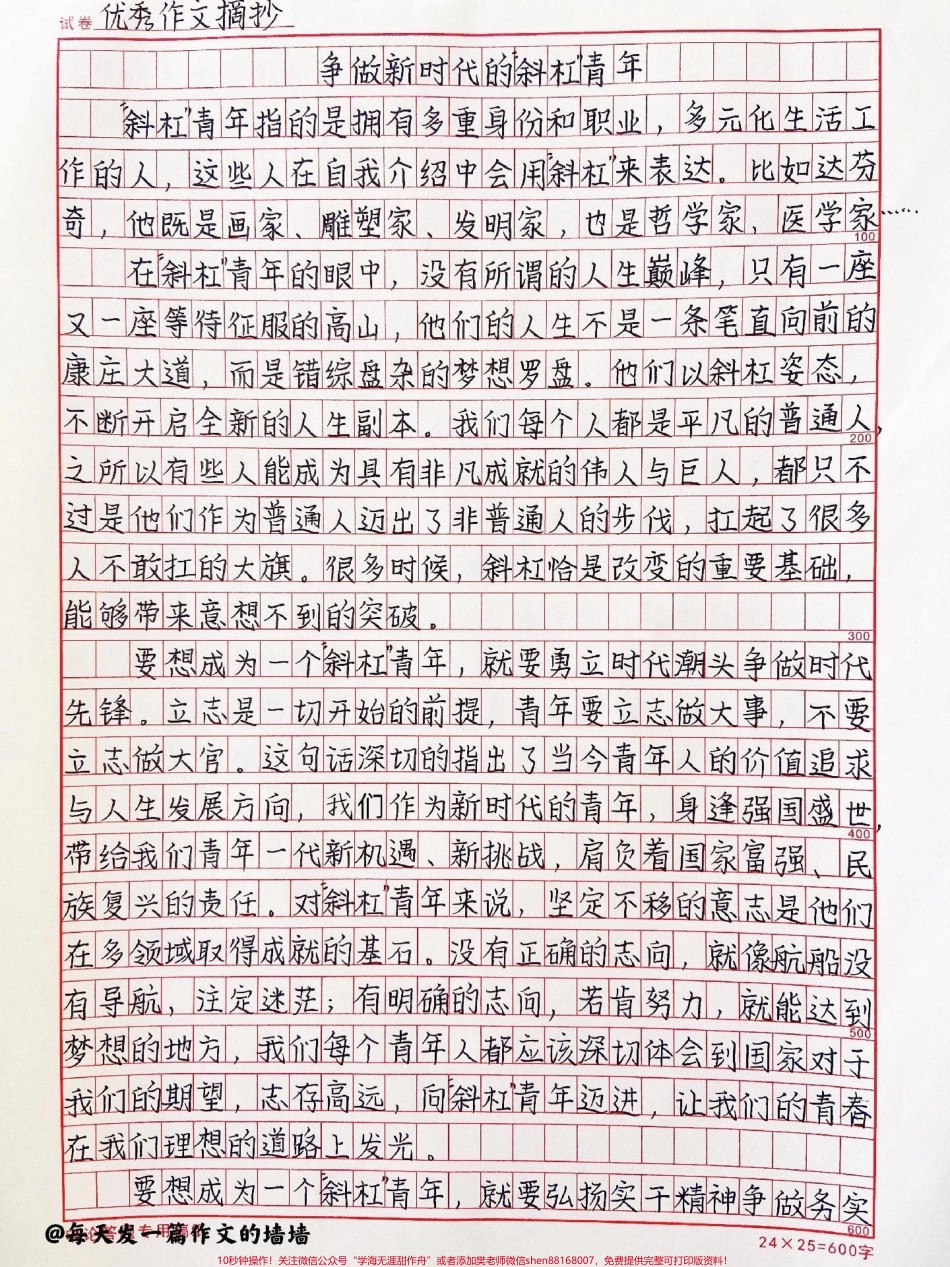 试卷 优秀作文摘抄
争做新时代的“斜杠”青年
“斜杠”青年指的是拥有多重身份和职业，多元化生活工
作的人，这些人在自我介绍中会用“斜杠”来表达。比如达芬
奇，他既是画家、雕塑家、发明家，也是哲学家、医学家……
100
在“斜杠”青年的眼中，没有所谓的人生巅峰，只有一座
又一座等待征服的高山，他们的人生不是一条笔直向前的
康庄大道，而是错综盘杂的梦想罗盘。他们以斜杠姿态，
不断开启全新的人生副本。我们每个人都是平凡的普通人，
200
之所以有些人能成为具有非凡成就的伟人与巨人，都只不
过是他们作为普通人迈出了非普通人的步伐，扛起了很多
人不敢扛的大旗。很多时候，斜杠恰是改变的重要基础，
能够带来意想不到的突破。
300
要想成为一个“斜杠”青年，就要勇立时代潮头争做时代
先锋。立志是一切开始的前提，青年要立志做大事，不要
立志做大官。这句话深切的指出了当今青年人的价值追求
与人生发展方向，我们作为新时代的青年，身逢强国盛世，
400
带给我们青年一代新机遇、新挑战，肩负着国家富强、民
族复兴的责任。对“斜杠”青年来说，坚定不移的意志是他们
在多领域取得成就的基石。没有正确的志向，就像航船没
有导航，注定迷茫；有明确的志向，若肯努力，就能达到
500
梦想的地方，我们每个青年人都应该深切体会到国家对于
我们的期望，志存高远，向“斜杠”青年迈进，让我们的青春
在我们理想的道路上发光。
要想成为一个“斜杠”青年，就要弘扬实干精神争做务实
600
@每天发一篇作文的墙墙
24×25=600字
10秒钟操作！关注微信公众号“学海无涯甜作舟”或者添加樊老师微信shen88168007，免费提供完整可打印版资料！